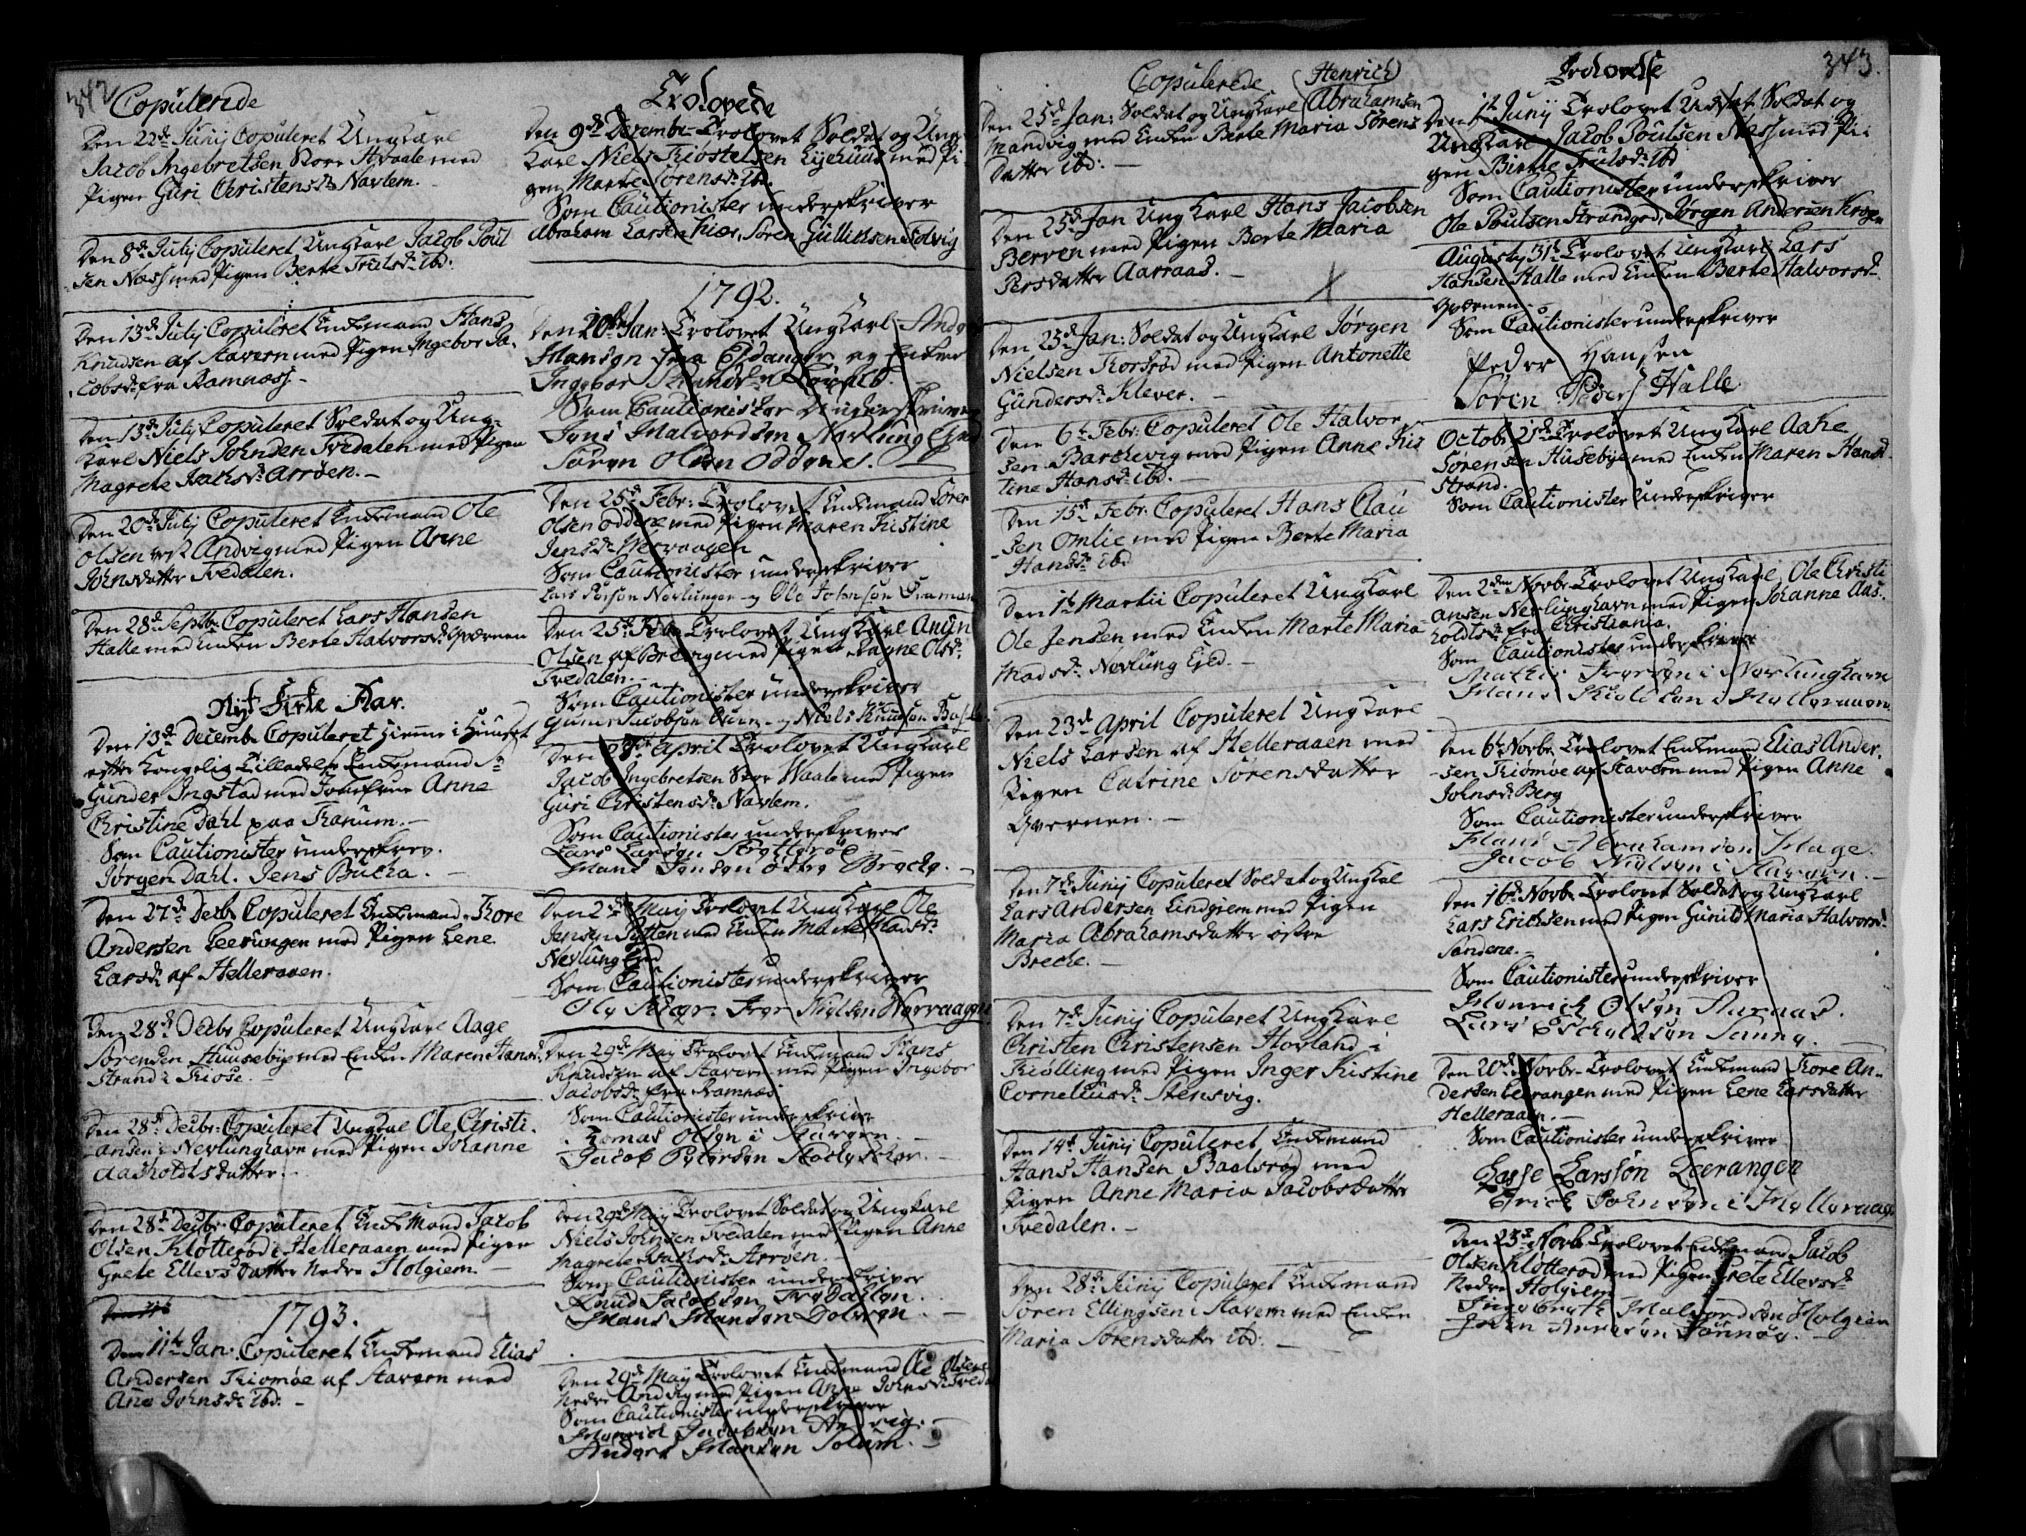 342
Copulerede
Den 22de Junij Copuleret Ungkarl
Jacob Ingebretsen Store Waale med
Pigen Guri Christensdr Navlem.
Den 8de Julij Copuleret Ungkarl Jacob Poul
sen Næss med Pigen Berte Trulsdr ibd:
Den 13de Julij Copuleret Enkemand Hans
Knudsen af Stavern med Pigen Ingebor Ja-
cobsdr fra Ramnæss.-
Den 13de Julij Copuleret Soldat og Ung-
karl Niels Johnsen Tvedalen med Pigen
Magrete Isachsdr Arrøen.-
Den 20de Julij Copuleret Enkemand Ole
Olsen Andvig med Pigen Anne
Johnsdatter Tvedalen.
Den 28de Septbr Copuleret Lars Hansen
Halle med Enken Berte Halvorsdr Qværnen
Nyt Kirke Aar.
Den 13de Decembr Copuleret hiemme i Huuset
efter kongelig Tilladelse Enkemand Sr
Gunder Ingstad med Jomfrue Anne
Christine Dahl paa Fanum.-
Som Cautionister underskrev.
Jørgen Dahl. Jens Bucha.-
Den 27de Decbr Copuleret Enkemand Tore
Andersen Leerungen med Pigen Lene
Larsdr af Helleraaen.
Den 28de Decbr Copuleret Ungkarl Aage
Sørensen Huusebye med Enken Maren Hansdr
Strand i Kiose.-
Den 28de Decbr: Copuleret Ungkal Ole Christi-
ansen i Nevlunghavn med Pigen Johanne
Aasholdtsdatter.-
Den 28de Decbr: Copuleret Enkemand Jacob
Olsen Kløtterød i Helleraaen med Pigen
Grete Ellevsdatter Nedre Holgiem.-
1793.
Den 11te Jan: Copuleret Enkemand Elias
Andersen Kiømøe af Stavern med
Ane Johnsdr ibd.-
Trolovede
Den 9de Decembr Trolovet Soldat og Ung-
karl Niels Kiøstelsen Lysehuus med Pi-
gen Marte Sørensdr ibd.
Som Cautionister underskriver
Abraham Larsen Kiær, Søren Gullichsen Lidvig
1792.
Den 20de Jan: Trolovet Ungkarl Anders
Hansøn fra Eidanger og Enken
Ingebor
Som Cautionister underskriver
Jens Halvordsen Nevlung Eied
Søren Olsen Oddene.
Den 25de Febr: Trolovet Enkemand Søren
Olsen Oddene med Pigen Maren Kistine
Jensdr Wervaagen
Som Cautionister underskriver
Lars Persøn Nevlungen og Ole Johnsøn
Den 25de Febr Trolovet Ungkarl Anun
Olsen af Brevig med Pigen Ragne Olsdr
Tvedalen.-
Som Cautionister underskriver
Jacobsøn og Niels Knudsøn
Den April Trolovet Ungkarl
Jacob Ingebretsen Store Waale med Pigen
Guri Christensdr Navlem.
Som Cautionister underskriver
Lars Larsøn
Hans Jensøn østre Brecke.
Den 2de Maij Trolovet Ungkarl Ole
Jensen Tutten med Enken Marte Madsdr
Nevlung Eied
Som Cautionister underskriver
Ole Kiær. Iver Nielsen Wervaagen
Den 29de Maij Trolovet Enkemand Hans
Knudsen af Stavern med Pigen Ingebor
Jacobsdr fra Ramnæs
Som Cautionister underskriver
Tomas Olsøn i Stavern.
Jacob Pedersøn
Den 29de Maij Trolovet Soldat og Ungkarl
Niels Johnsen Tvedalen med Pigen Anne
Magrete Isachsdr Arrøen.
Som Cautionister underskriver
Knud Jacobsøn Tvedallen.
Hans Hansøn Dolven.
Den 29de Maij Trolovet Enkemand Ole Olsen
Nedre Andvig med Pigen Anne Johnsdr Tveda
Som Cautionister underskriver
Henrich Jacobsøn Andvig.
Anders Hansøn Solum.
Copulerede
Henrich
Den 25de Jan: Soldat og Ungkarl Abrahamsen
Mandvig med Enken Berte Maria Sørens
datter ibd:-
Den 25de Jan Ungkarl Hans Jacobsen
Berven med Pigen Berte Maria
Persdatter Aarraas.-
Den 25de Jan: Soldat og Ungkarl Jørgen
Nielsen Torsrød med Pigen Antonette
Gundersdr Klever.-
Den 6te Febr: Copuleret Ole Halvor
sen Barthevig med Pigen Anne Kis
tine Hansdr ibd.-
Den 15de Febr: Copuleret Hans Clau
sen Omlie med Pigen Berte Maria
Hansdr ibd
Den 1te Martii Copuleret Ungkarl
Ole Jensen med Enken Marte Maria
Madsdr Nevlung Eied.-
Den 23de April Copuleret Ungkarl
Niels Larsen af Helleraaen med
Pigen Catrine Sørensdatter
Qvernen.-
Den 7de Junij Copuleret Soldat og Ungkal
Lars Andersen Lindgiem med Pigen
Maria Abrahamsdatter østre
Brecke.-
Den 7de Junij Copuleret Ungkarl
Christen Christensen Hovland i
Kiølling med Pigen Inger Kistine
Corneliusdr Stensvig.
Den 14de Junij Copuleret Enkemand
Hans Hansen Baalsrød med
Pigen Anne Maria Jacobsdatter
Tvedalen.-
Den 28de Junij Copuleret Enkemand
Søren Ellingsen i Stavern med Enken
Maria Sørensdatter ibd:-
343.
Trolovede
Den 1te Junij Trolovet Soldat og
Ungkarl Jacob Poulsen Næss med Pi
gen Birthe Trulsdr ibd
Som Cautionister underskriver
Ole Poulsen Strandgod, Jørgen Andersen
Augustj 31te Trolovet Ungkarl Lars
Hansen Halle med Enken Berte Halvorsdr
Qvernen.-
Som Cautionister underskriver
Peder Hansen
Søren Peders Halle
Octobr Trolovet Ungkarl Aake
Sørensen Husebye med Enken Maren Hansdr
Strand.
Som Cautionister underskriver
Den 2den Novbr Trolovet Ungkarl Ole Christi
ansen Nevlunghavn med Pigen Johanne Aas-
holdtsdr fra Christiania.
Som Cautionister underskriver
Mathis Iversøn i Nevlunghavn
Hans i Helleraaen
Den 6te Novbr Trolovet Enkemand Elias Ander-
sen Kiømøe af Stavern med Pigen Anne
Johnsdr Berg
Som Cautionister underskriver
Hans Abrahamsøn Hage.
Jacob Nielsøn i Stavern.
Den 16de Novbr Trolovet Soldat og Ungkarl
Lars Erichsen med Pigen Gunild Maria Halvorsdr
Sandene.-
Som Cautionister underskriver
Henrich Olsøn Aaraas.
Lars
Den 20de Novbr Trolovet Enkemand Tore An-
dersen Leerangen med Pigen Lene Larsdatter
Helleraaen.-
Som Cautionister underskriver
Lasse Larssøn Leerangen
Erick Johnsøn i Helleraaen
Den 23de Novbr Trolovet Enkemand Jacob
Olsen Kløtterød med Pigen Grete Ellevsdr
Nedre Holgiem
Halvordsøn Holgiem